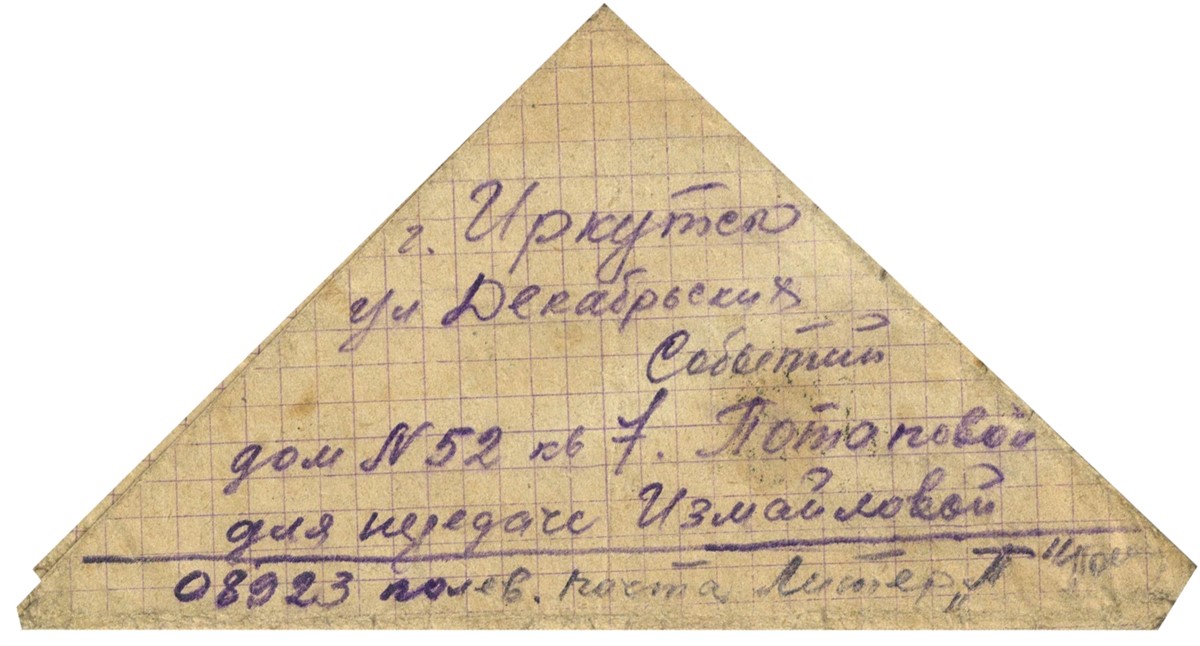 г. Иркутск
ул Декабрьских
Событий
дом N 52 кв 7. Потаповой
для передачи Измайловой
08923 полев. почта Литер „П"